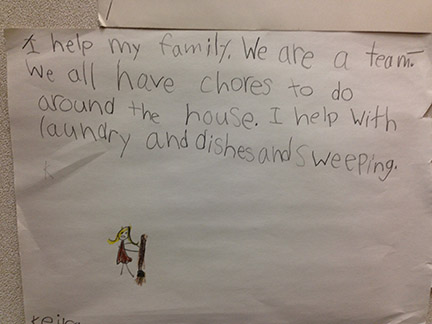 I help my family. We are a team.
We all have chores to do
around the house. I help with
laundry and dishes and sweeping.